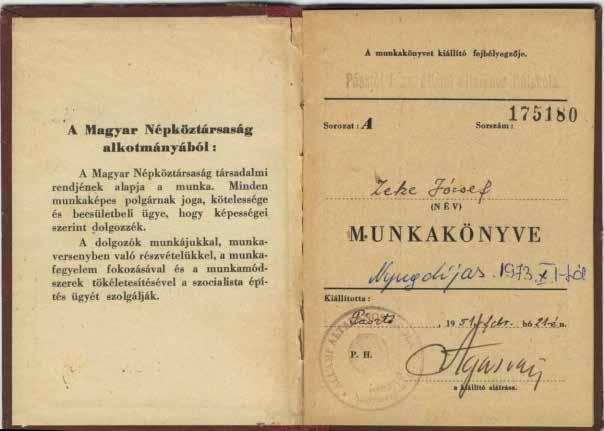 A Magyar Népköztársaság
alkotmányából:
A Magyar Népköztársaság társadalmi
rendjének alapja a munka. Minden
munkaképes polgárnak joga, kötelessége
és becsületbeli ügye, hogy képességei
szerint dolgozzék.
A dolgozók munkájukkal, munka-
versenyben való részvételükkel, a munka-
fegyelem fokozásával és a munkamód-
szerek tökéletesítésével a szocialista épí-
tés ügyét szolgálják.
A munkakönyvet kiállító fejbélyegzője.
általános
175180
Sorozat: A Sorszám:
Zeke József
(NÉV)
MUNKAKÖNYVE
Nyugdíjas. 1973. XI-től
Kiállította:
Pásztó, 1951. febr. hó 21-én.
P. H.
a kiállító aláírása.